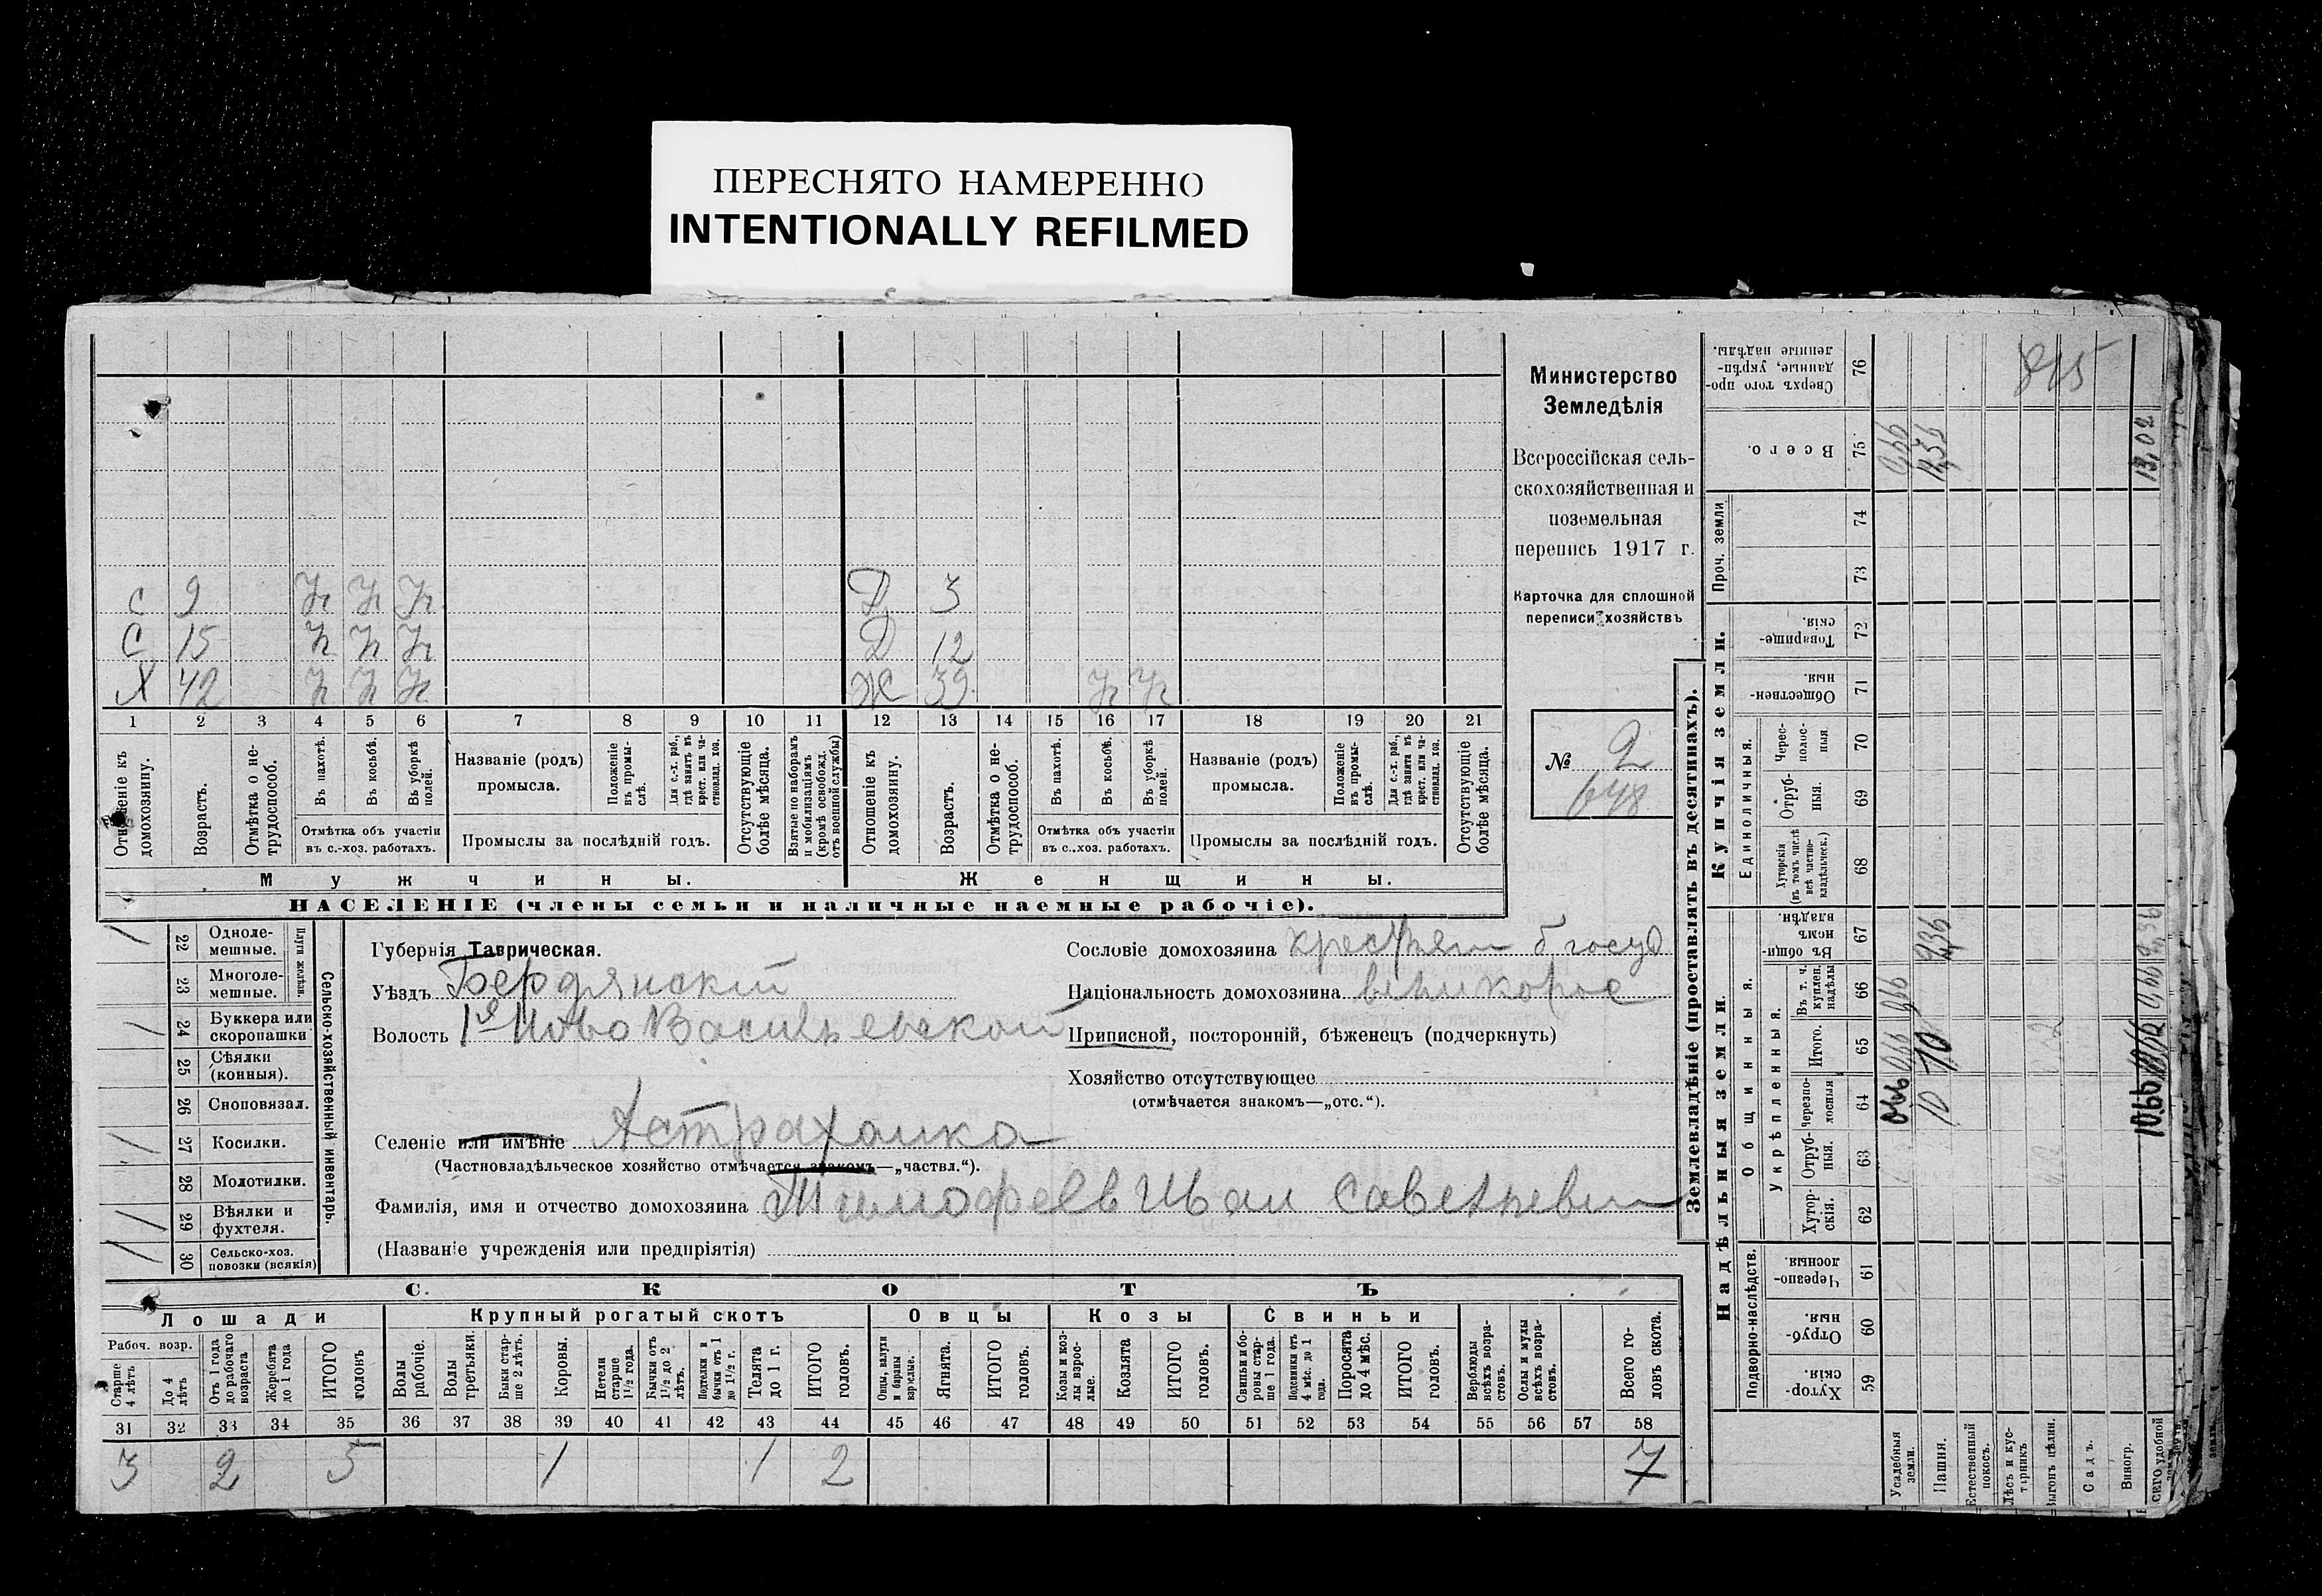 ПЕРЕСНЯТО НАМЕРЕННО
INTENTIONALLY REFILMED
Министерство
Земледѣлія
Всероссійская сель-
скохозяйственная и
поземельная
перепись 1917 г.
Карточка для сплошной
переписи хозяйствъ
№ 2
648
С 9 Д 3
С 15 Д 12
Х 42 Ж 39
1 2 3 4 5 6 7 8 9 10 11 12 13 14 15 16 17 18 19 20 21
Отношеніе къ домохозяину.
Возрастъ.
Отмѣтка о не-трудоспособ.
Въ пахотѣ.
Въ косьбѣ.
Въ уборкѣ полей.
Отмѣтка объ участіи
въ с.-хоз. работахъ.
Названіе (родъ)
промысла.
Положеніе въ промы-слѣ.
Для с.-х. раб., гдѣ занятъ въ крест. или ча-стновлад. хоз.
Промыслы за послѣдній годъ.
Отсутствующіе болѣе мѣсяца.
Взятые по наборамъ и мобилизаціямъ (кромѣ освобожд. отъ военной службы)
Отношеніе къ домохозяину.
Возрастъ.
Отмѣтка о не-трудоспособ.
Въ пахотѣ.
Въ косьбѣ.
Въ уборкѣ полей.
Отмѣтка объ участіи
въ с.-хоз. работахъ.
Названіе (родъ)
промысла.
Положеніе въ промы-слѣ.
Для с.-х. раб., гдѣ занята въ крест. или ча-стновлад. хоз.
Промыслы за послѣдній годъ.
Отсутствующіе болѣе мѣсяца.
Мужчины. Женщины.
НАСЕЛЕНІЕ (члены семьи и наличные наемные рабочіе).
Сельско-хозяйственный инвентарь.
Плуги желѣзн.
/ 22 Одноле-мешные.
23 Многоле-мешные.
/ 24 Буккера или скоропашки
25 Сѣялки (конныя).
26 Сноповязал.
// 27 Косилки.
28 Молотилки.
/ 29 Вѣялки и фухтеля.
// 30 Сельско-хоз. повозки (всякія)
Губернія Таврическая.
Уѣздъ Бердянскій
Волость 1я Ново Васильевской
Селеніе или имѣніе Астраханка
(Частновладѣльческое хозяйство отмѣчается знакомъ—„частвл.“).
Фамилія, имя и отчество домохозяина Тимофеев Иван Савельевич
(Названіе учрежденія или предпріятія)
Сословіе домохозяина крестьян б госуд
Національность домохозяина великорос
Приписной, посторонній, бѣженецъ (подчеркнуть)
Хозяйство отсутствующее
(отмѣчается знакомъ—„отс.“).
СКОТЪ
Лошади Крупный рогатый скотъ Овцы Козы Свиньи
Рабоч. возр.
Старше 4 лѣтъ
До 4 лѣтъ
Отъ 1 года до рабочаго возраста
Жеребята до 1 года
ИТОГО головъ
Волы рабочіе.
Волы третьяки.
Быки стар-ше 2 лѣтъ.
Коровы.
Нетели старше 1½ года.
Бычки отъ 1½ до 2 лѣтъ.
Подтелки и бычки отъ 1 до 1½ г.
Телята до 1 г.
ИТОГО головъ.
Овцы, валухи и бараны взрослые.
Ягнята.
ИТОГО головъ.
Козы и коз-лы взрос-лые.
Козлята
ИТОГО головъ.
Свиньи и бо-ровы стар-ше 1 года.
Подсвинки отъ 4 мѣс. до 1 года.
Поросята до 4 мѣс.
ИТОГО головъ.
Верблюды всѣхъ возра-стовъ.
Ослы и мулы всѣхъ возра-стовъ.
Всего го-ловъ скота.
31 32 33 34 35 36 37 38 39 40 41 42 43 44 45 46 47 48 49 50 51 52 53 54 55 56 57 58
3 2 5 1 1 2 7
Землевладѣніе (проставлять въ десятинахъ).
Надѣльныя земли. Купчія земли.
Подворно-наслѣдств.
Общинныя.
Укрѣпленныя.
Единоличныя.
Проч. земли
Хутор-скія. 59
Отруб-ныя 60
Черезпо-лосныя 61
Хутор-скія. 62
Отруб-ныя. 63
Черезпо-лосныя 64
Итого. 65
Въ т. ч. куплен. надѣлы 66
Въ общин-номъ владѣн. 67
Хуторскія (въ томъ числѣ всѣ частно-владѣльческ.) 68
Отруб-ныя. 69
Черес-полос-ныя. 70
Обществен-ныя. 71
Товарище-скія. 72
73
74
Всего. 75
Сверхъ того про-данные, укрѣп-ленные надѣлы. 76
Усадебныя земли.
066 066 066 066
Пашня.
10 10 2,36
Естественный покосъ.
Лѣсъ и кус-тарникъ
Выгонъ цѣлин.
Садъ.
Виногр.
10,66 2,36 13,02